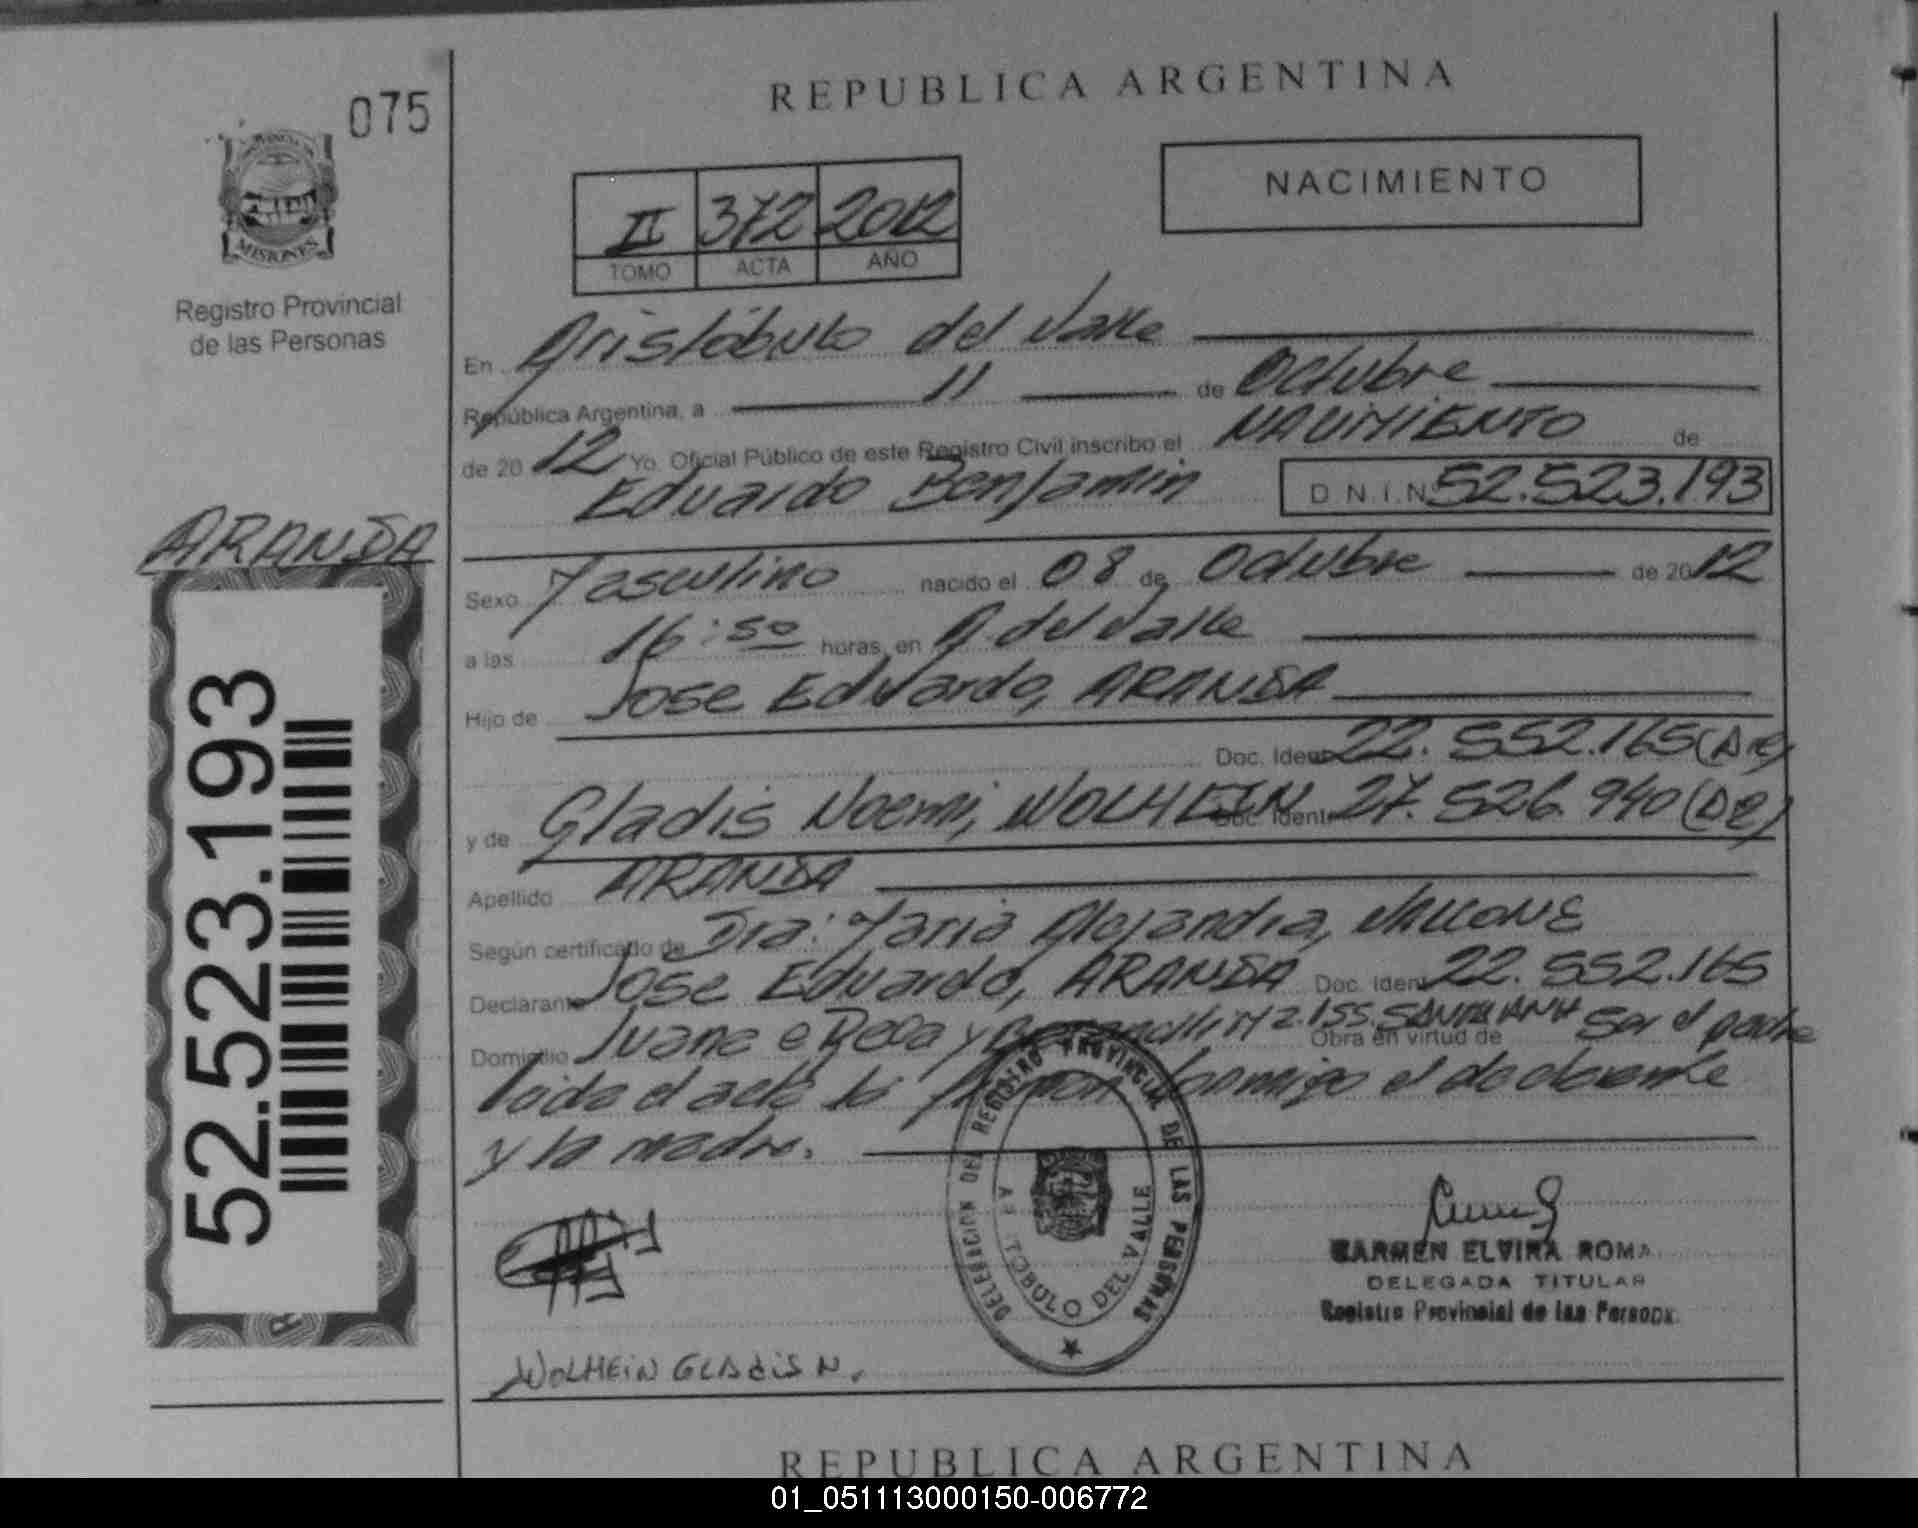 REPUBLICA ARGENTINA
075
NACIMIENTO
II 372 2012
TOMO ACTA AÑO
MISIONES
Registro Provincial
de las Personas
En Aristóbulo del Valle
República Argentina, a 11 de Octubre
de 2012 Yo. Oficial Público de este Registro Civil inscribo el NACIMIENTO de
Eduardo Benjamin D.N.I.Nº 52.523.193
ARANDA
Sexo Masculino nacido el 08 de Octubre de 2012
a las 16:50 horas, en A. del Valle
Hijo de Jose Eduardo, ARANDA
Doc. Ident. 22.552.165
y de Gladis Noemi, WOLHEIN Doc. Ident. 27.526.940
Apellido ARANDA
Según certificado de Dra: Maria Alejandra, VALLONE
Declarante Jose Eduardo, ARANDA Doc. Ident. 22.552.165
Domicilio Juana Obra en virtud de Ser el padre
leida el acta la firman conmigo el declarante
y la madre.
52.523.193
DELEGACION DEL REGISTRO PROVINCIAL DE LAS PERSONAS
TOBULO DEL VALLE
CARMEN ELVIRA ROMA
DELEGADA TITULAR
Registro Provincial de las Persona
WOLHEIN GLADIS N.
REPUBLICA ARGENTINA
01_051113000150-006772